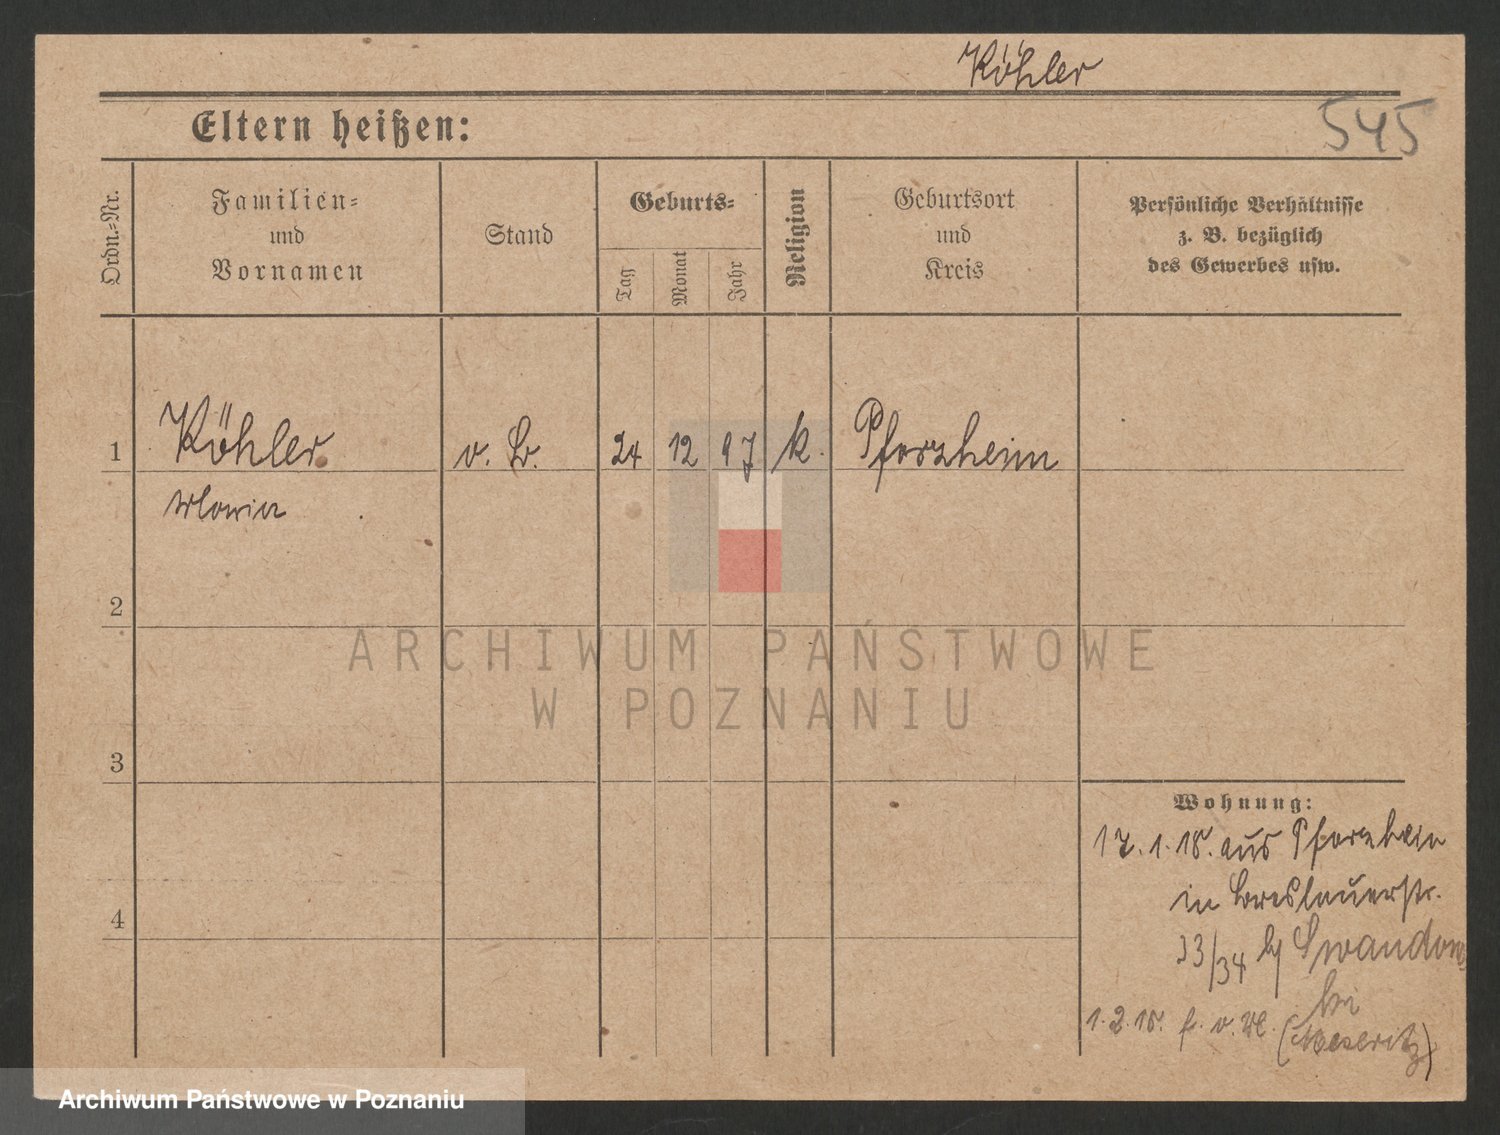 Köhler
545
Eltern heißen:
Ordn.-Nr.
Familien-
und
Vornamen
Stand
Geburts-
Tag
Monat
Jahr
Religion
Geburtsort
und
Kreis
Persönliche Verhältnisse
z. B. bezüglich
des Gewerbes usw.
1
Köhler
o. B.
24
12
97
k.
Pforzheim
Maria
2
3
4
ARCHIWUM PAŃSTWOWE
W POZNANIU
Wohnung:
17.1.18. aus Pforzheim
in Breslauerstr.
33/34
1.2.18.
(Meseritz)
Archiwum Państwowe w Poznaniu